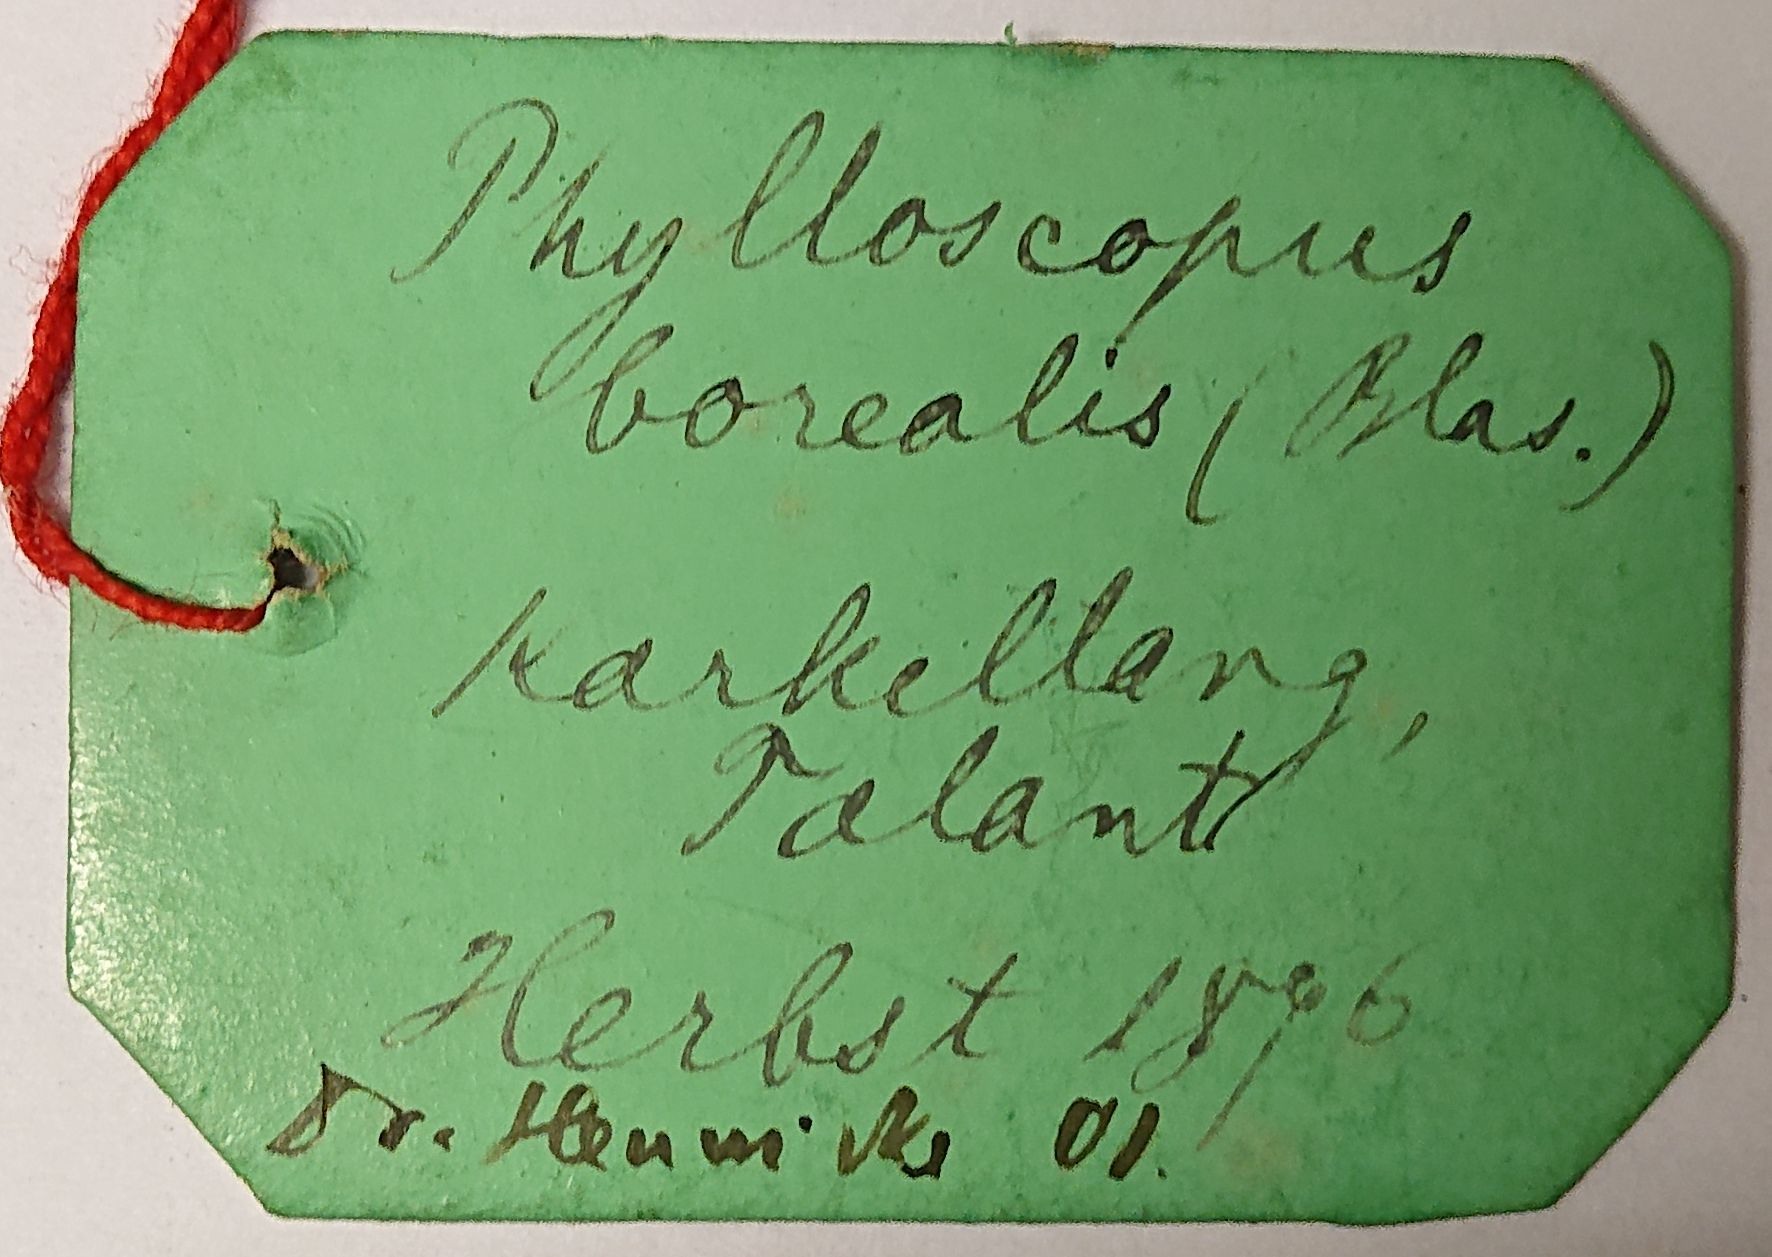 Phylloscopus
borealis (Blas.)
Karkellang,
Talant
Herbst 1896
Dr. Hennicke 01.